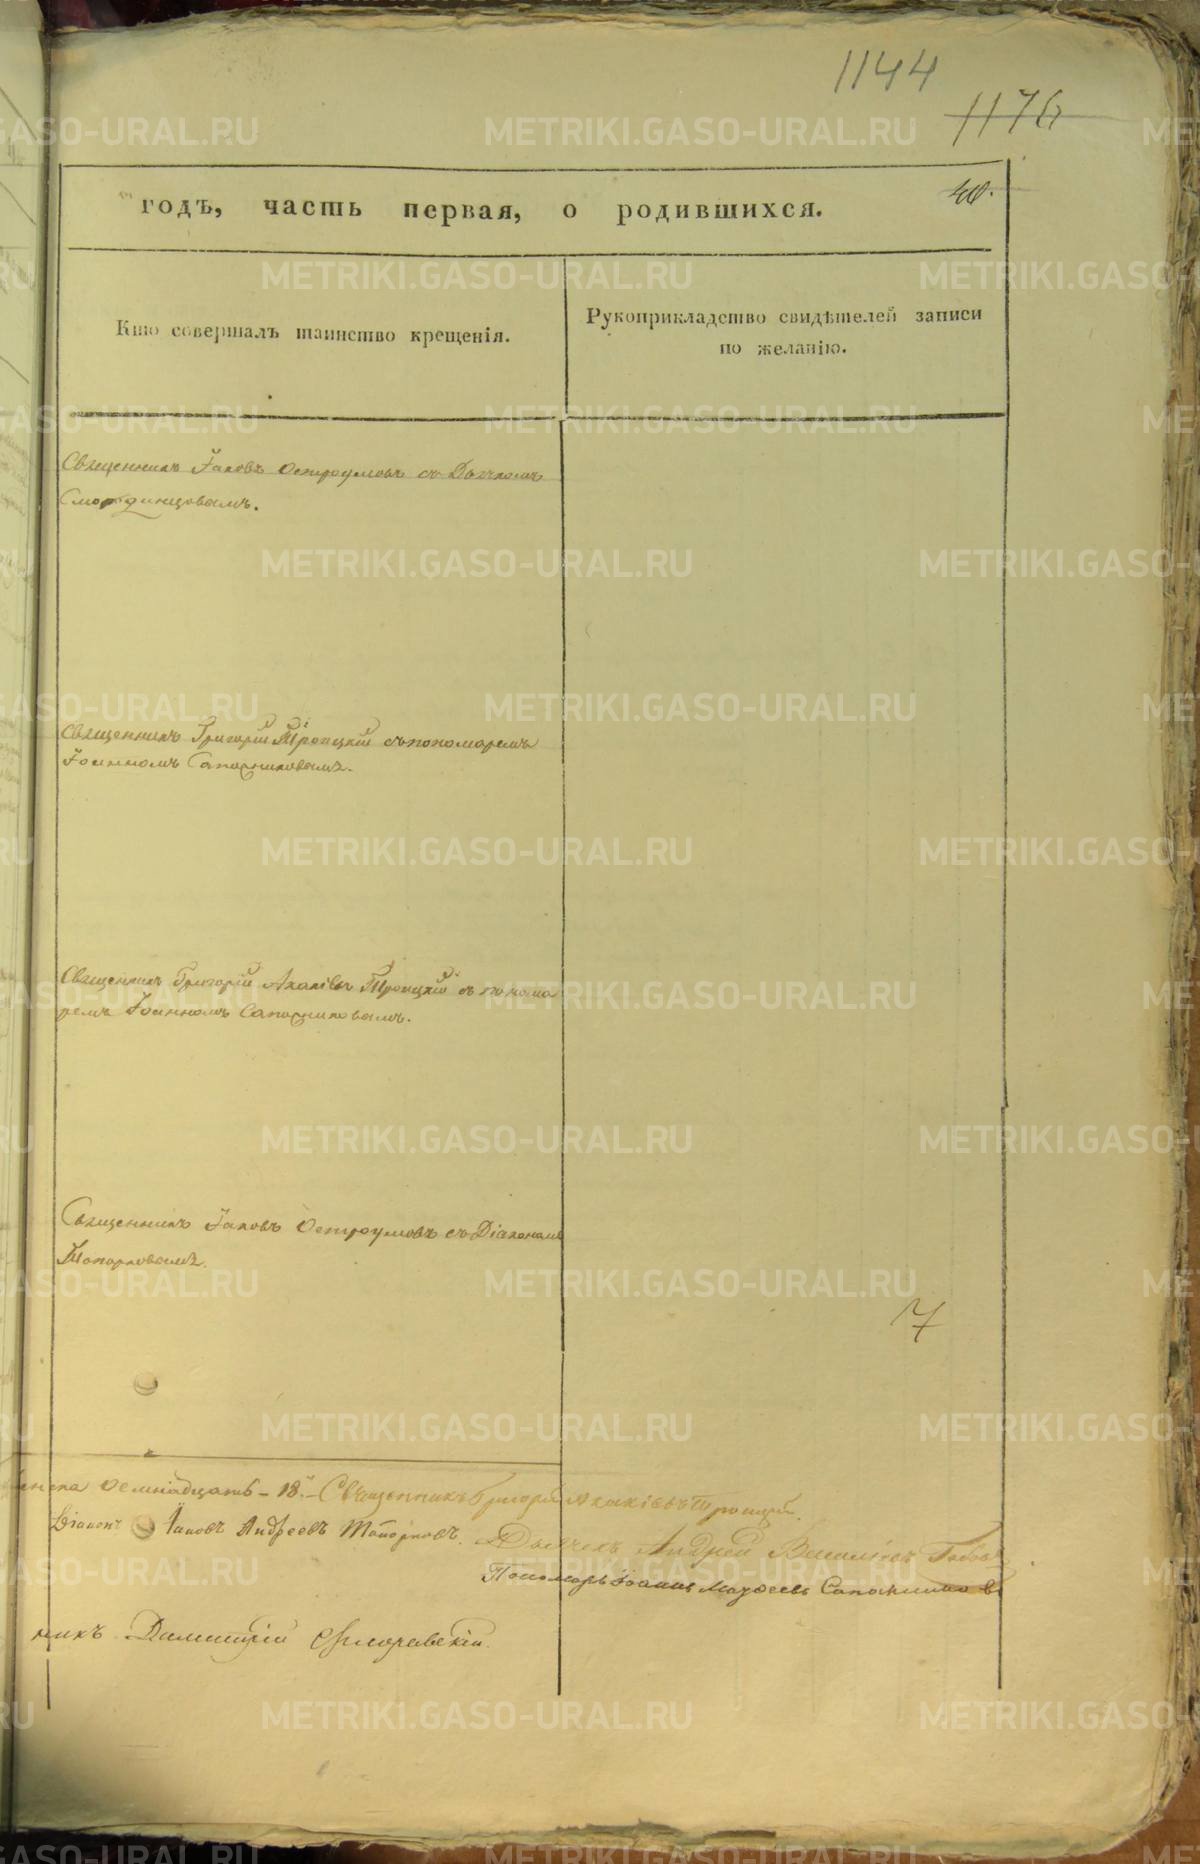 1144
1176
40.
годъ, часть первая, о родившихся.
Кто совершалъ таинство крещенія.
Рукоприкладство свидѣтелей записи
по желанію.
Священникъ Іаковъ Остроумовъ съ Дьячкомъ
Смородинцовымъ.
Священникъ Григорій Троицкій съ пономаремъ
Іоанномъ Сапожниковымъ.
Священникъ Григорій Акакіевъ Троицкій съ понома
ремъ Іоанномъ Сапожниковымъ.
Священникъ Іаковъ Остроумовъ съ Діакономъ
Топорковымъ.
7
осмнадцать - 18. - Священникъ Григорій Акакіевъ Троицкій.
Діаконъ Іаковъ Андреевъ Топорковъ. Дьячекъ Андрей
Пономарь Іоаннъ Сапожниковъ
никъ Димитрій
METRIKI.GASO-URAL.RU